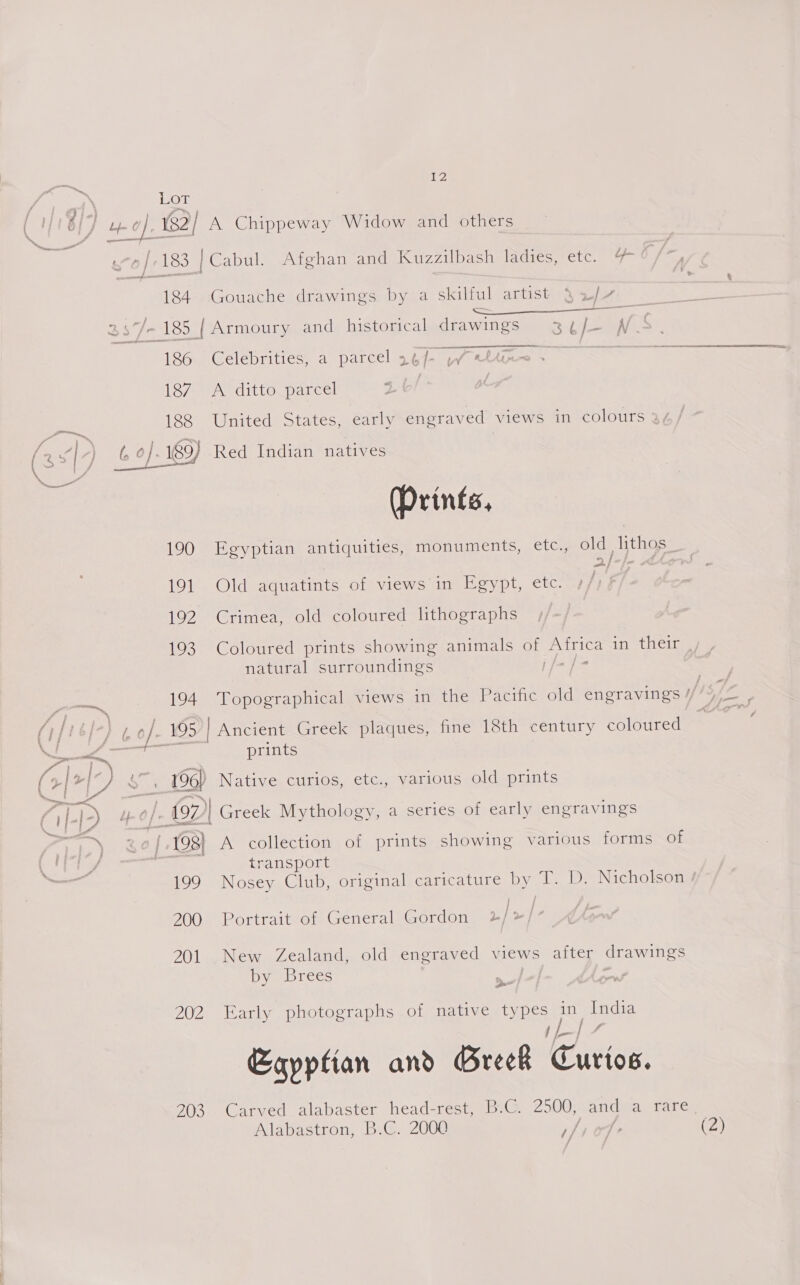 12
LOT
182 A Chippeway Widow and others
183 Cabul. Afghan and Kuzzilbash ladies, etc.
184 Gouache drawings by a skilful artist
185 Armoury and historical drawings 36/- N.S.
186 Celebrities, a parcel 26/-
187 A ditto parcel
188 United States, early engraved views in colours
(35/-) 60/- 189 Red Indian natives
Prints.
190 Egyptian antiquities, monuments, etc., old lithos
191 Old aquatints of views in Egypt, etc.
192 Crimea, old coloured lithographs
193 Coloured prints showing animals of Africa in their
natural surroundings 1/-/-
194 Topographical views in the Pacific old engravings
195 Ancient Greek plaques, fine 18th century coloured
prints
(2/2/-) 196 Native curios, etc., various old prints
(1/-/-) 40/- 197 Greek Mythology, a series of early engravings
20/- 198 A collection of prints showing various forms of
transport
199 Nosey Club, original caricature by T. D. Nicholson
200 Portrait of General Gordon 2/2/-
201 New Zealand, old engraved views after drawings
by Brees
202 Early photographs of native types in India
Egyptian and Greek Curios.
203 Carved alabaster head-rest, B.C. 2500, and a rare
Alabastron, B.C. 2000 (2)